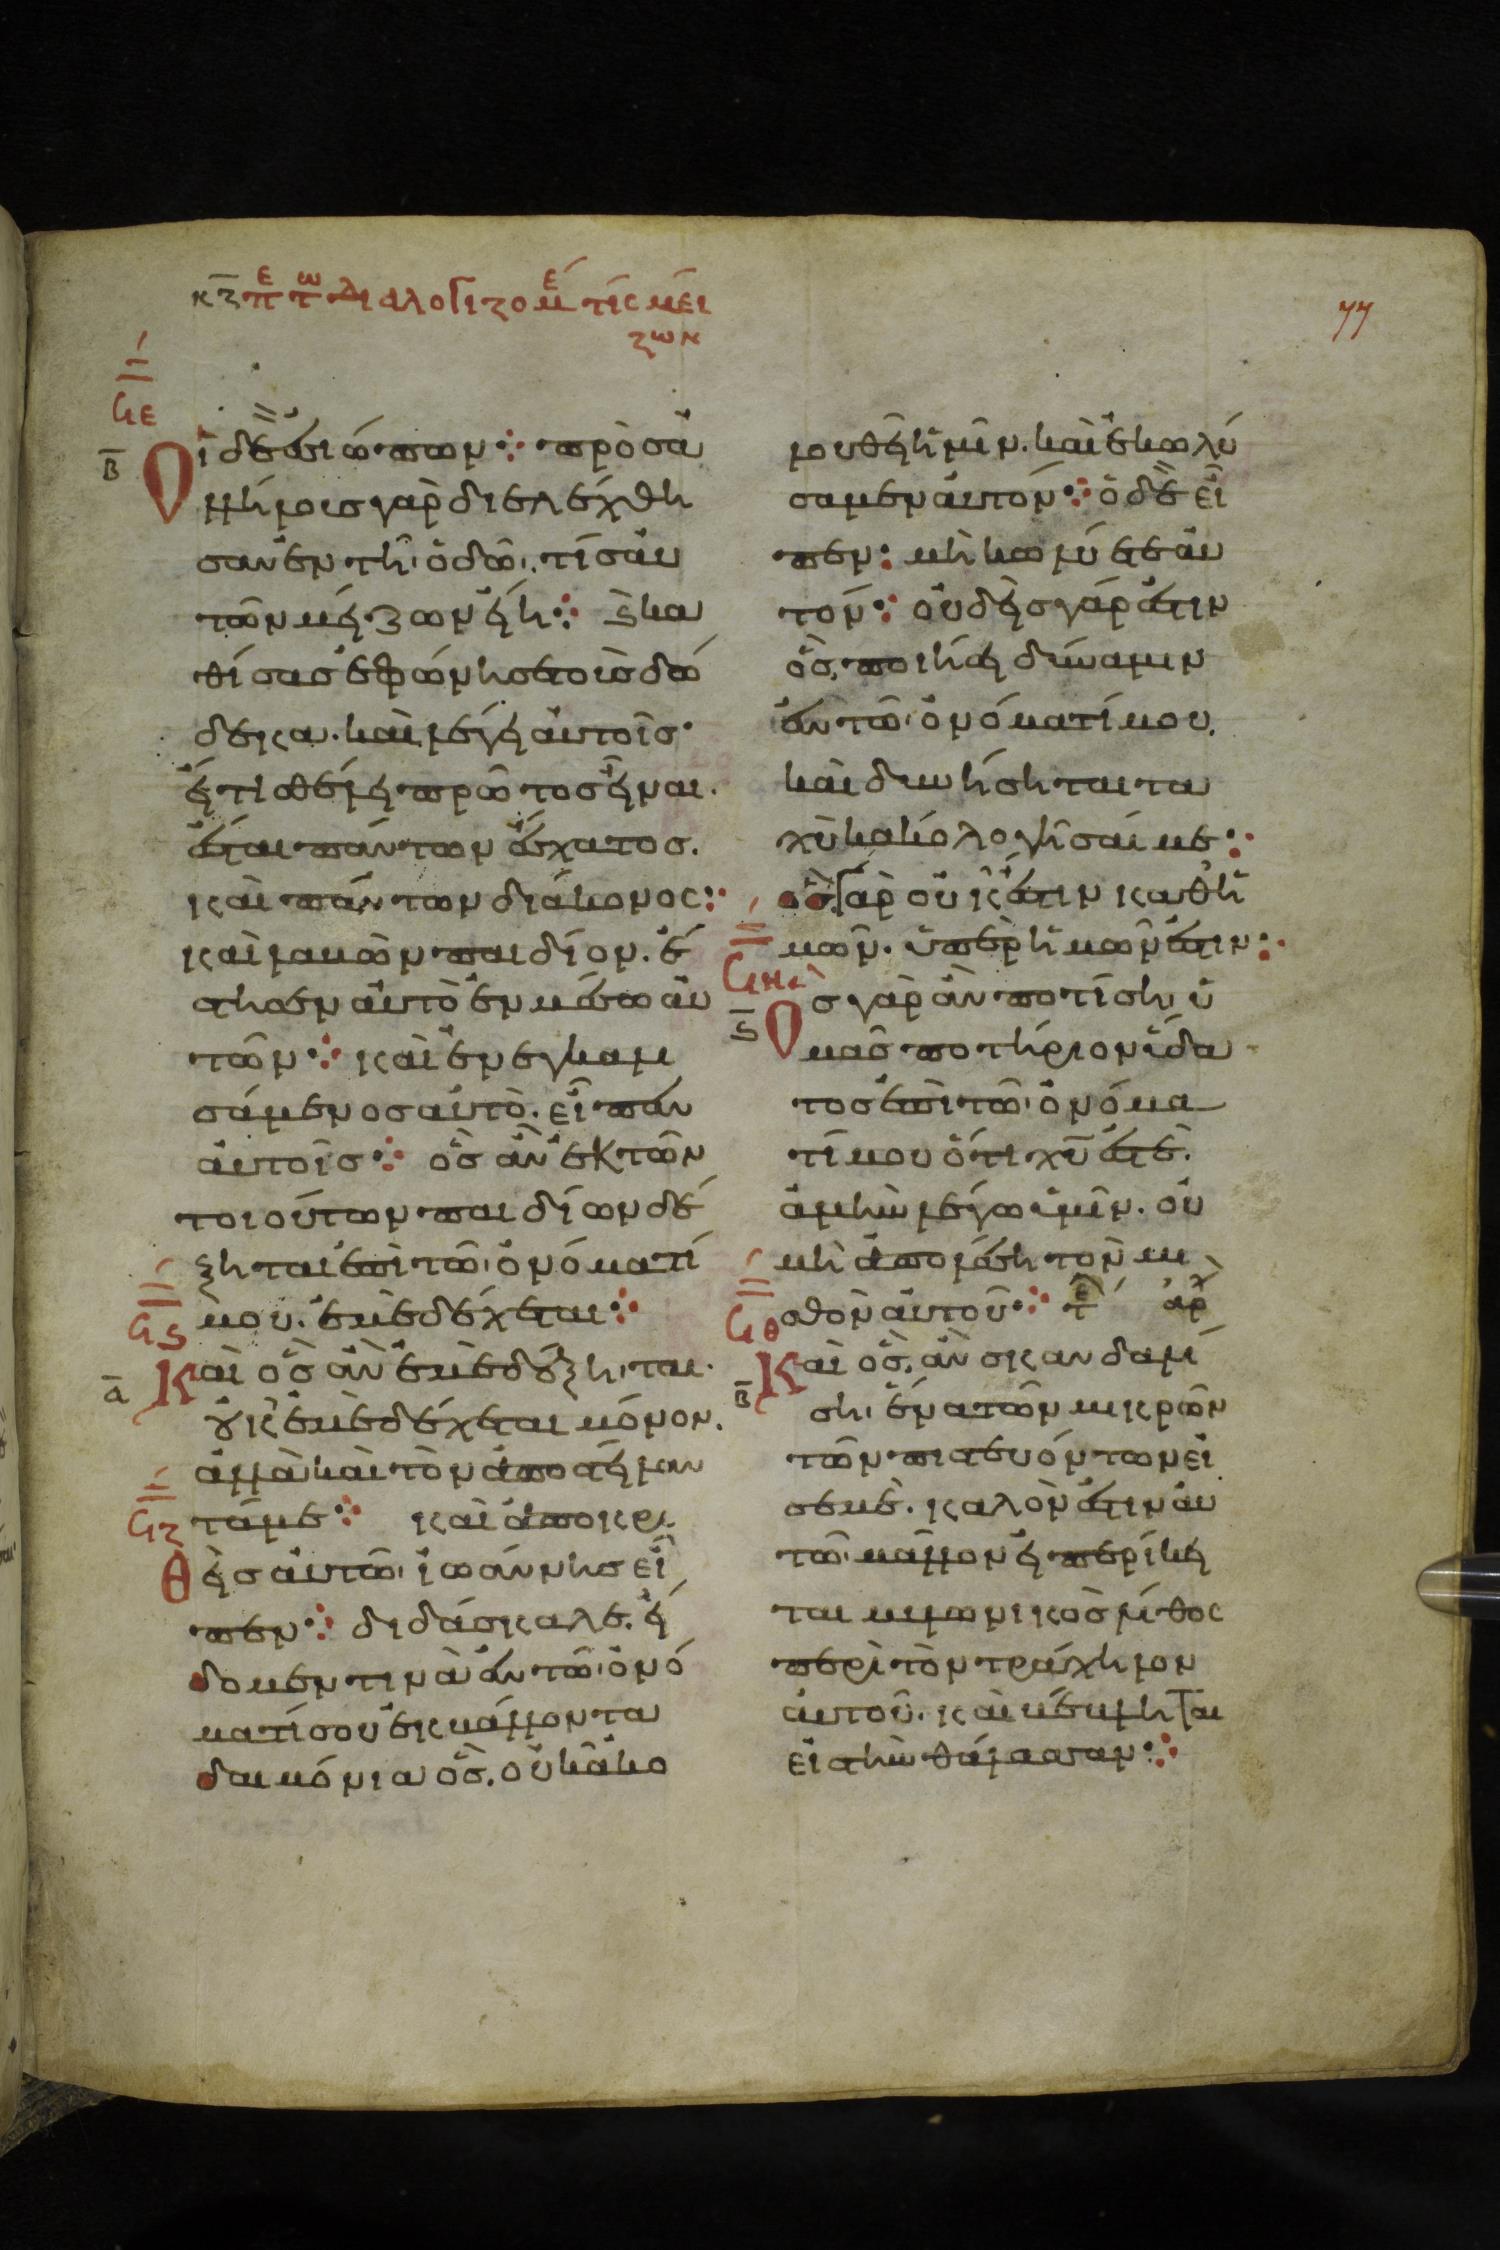 κζ πε τω διαλογιζομέ τίς μεί
ζων
77
ϟε
β
Οἱ δὲ ἐσιώπων· πρὸς ἀλ
λήλους γὰρ διελέχθη
σαν ἐν τῆ ὁδῶ. τίς αὐ
τῶν μείζων εἴη· καὶ κα
θίσας ἐφώνησε τοὺς δώ
δεκα. καὶ λέγει αὐτοῖς·
εἴ τις θέλει πρῶτος εἶναι.
ἔσται πάντων ἔσχατος.
καὶ πάντων διάκονος·
καὶ λαβὼν παιδίον. ἔ
στησεν αὐτὸ ἐν μέσω αὐ
τῶν· καὶ ἐνεγκαλι
σάμενος αὐτὸ. εἶπεν
αὐτοῖς· ὃς ἂν ἐκ τῶν
τοιούτων παιδίων δέ
ξηται ἐπὶ τῶ ὀνόματί
μου. ἐμὲ δέχεται·
ϟϛ
α
Καὶ ὃς ἂν ἐμὲ δέξηται.
οὐκ ἐμὲ δέχεται μόνον.
ἀλλὰ καὶ τὸν ἀποστείλαν
τά με· καὶ ἀποκρι
ϟζ
θεὶς αὐτῶ ἰωάννης εἶ
πεν· διδάσκαλε. εἴ
δομεν τινὰ ἐν τῶ ὀνό
ματί σου ἐκβάλλοντα
δαιμόνια ὃς. οὐκ ἀκο
λουθεῖ ἡμῖν. καὶ ἐκωλύ
σαμεν αὐτόν· ὁ δὲ εἶ
πεν· μὴ κωλύετε αὐ
τόν· οὐδεὶς γάρ ἐστιν
ὃς ποιήσει δύναμιν
ἐν τῶ ὀνόματί μου.
καὶ δυνήσηται τα
χὺ κακολογῆσαί με·
ὃς γὰρ οὐκ ἔστιν καθ ἡ
μῶν. ὑπὲρ ἡμῶν ἐστιν·
ϟη
ϛ
Ὃς γὰρ ἂν ποτίση ὑ
μᾶς ποτήριον ὕδα
τος ἐπὶ τῶ ὀνόμα
τί μου ὅτι χυ ἐστὲ.
ἀμὴν λέγω ὑμῖν. οὐ
μὴ ἀπολέση τὸν μι
σθὸν αὐτοῦ· τε ἀρχ
ϟθ
β
Καὶ ὃς ἂν σκανδαλί
ση ἕνα τῶν μικρῶν
τῶν πιστευόντων εἰ
ς ἐμὲ. καλὸν ἐστιν αὐ
τῶ μᾶλλον εἰ περίκει
ται μυλωνικὸς λίθος
περὶ τὸν τράχηλον
αὐτοῦ. καὶ βέβληται
εἰς τὴν θάλασσαν·